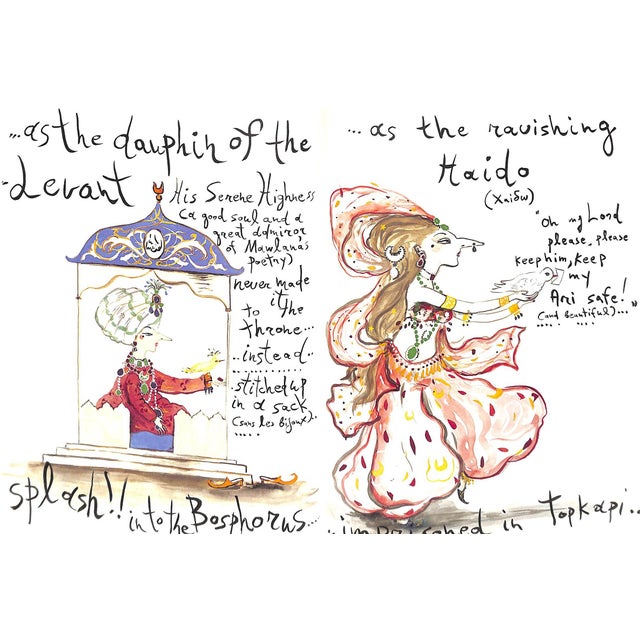 ...as the dauphin of the
Levant
His Serene Highness
(a good soul and a
great admiror
of Mawlana's
poetry)
never made
it
to the
throne...
...instead..
..stitched up
in a sack
(sans les bijoux)..
.....
splash!! into the Bosphorus...
... as the ravishing
Haido
(Χαϊδω)
"Oh my Lord
please, please
keep him, keep
my
Ari safe!"
(and beautiful)...
..imprisoned in Topkapi...